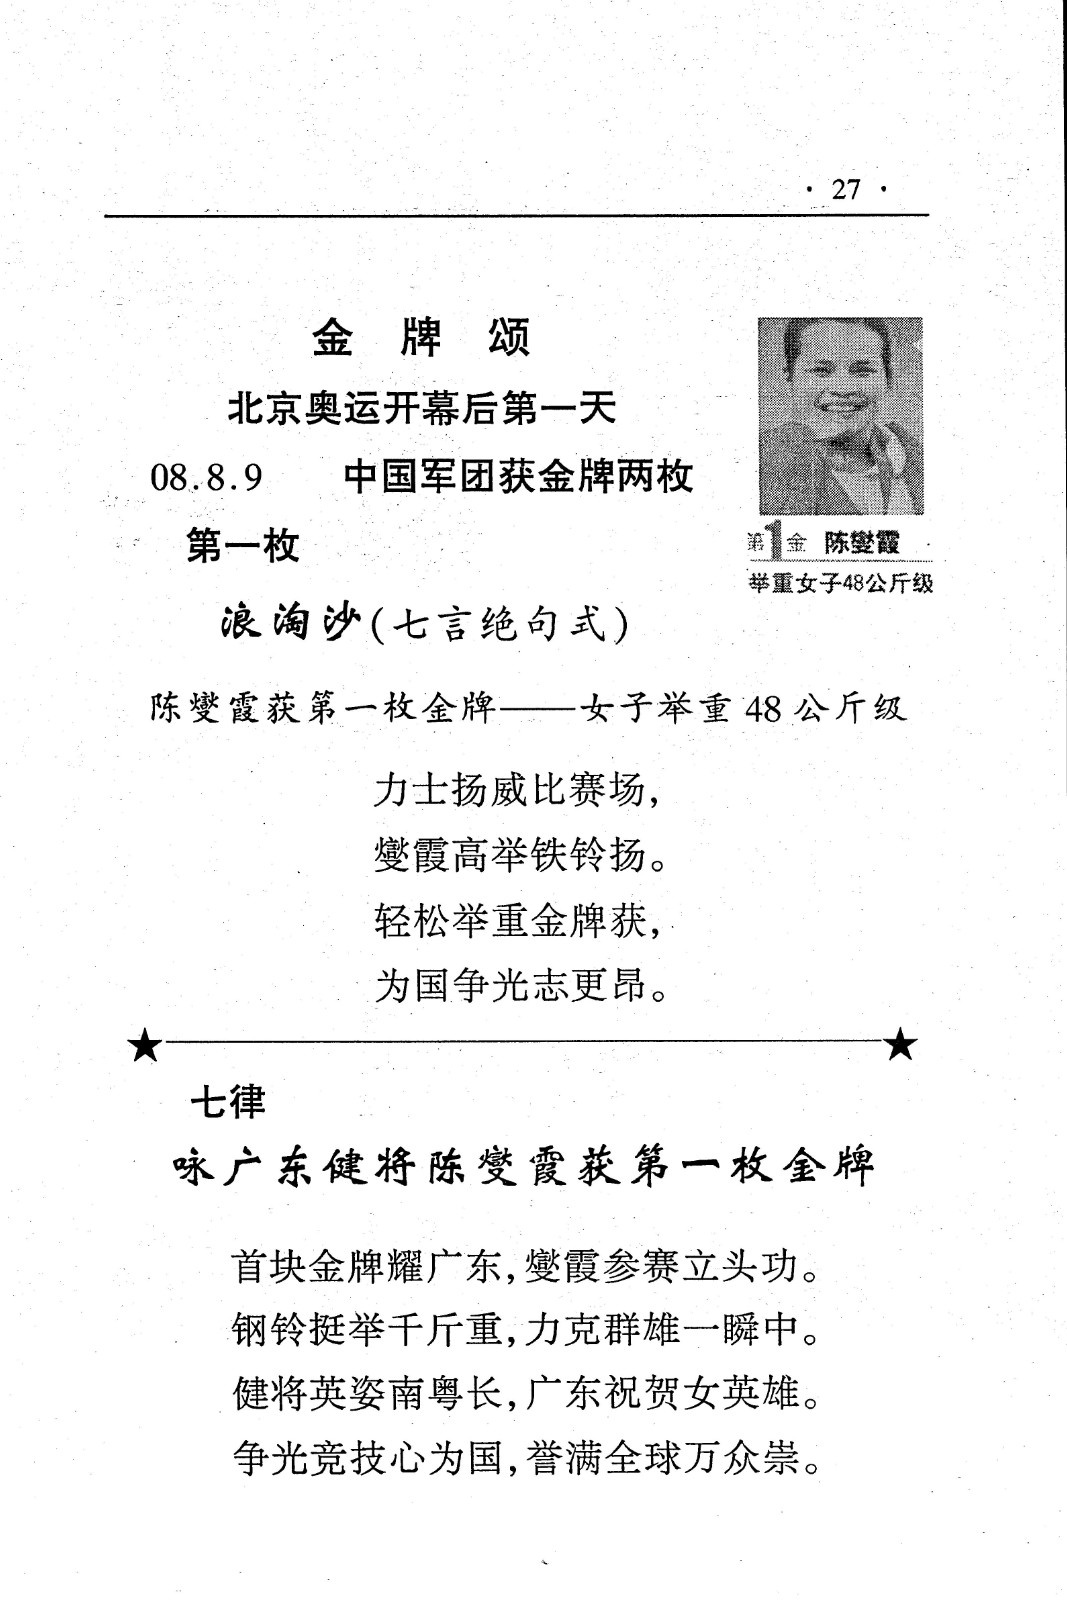 · 27 ·
金 牌 颂
北京奥运开幕后第一天
08.8.9 中国军团获金牌两枚
第一枚
第1金 陈燮霞
举重女子48公斤级
浪淘沙(七言绝句式)
陈燮霞获第一枚金牌——女子举重 48 公斤级
力士扬威比赛场,
燮霞高举铁铃扬。
轻松举重金牌获,
为国争光志更昂。
七律
咏广东健将陈燮霞获第一枚金牌
首块金牌耀广东,燮霞参赛立头功。
钢铃挺举千斤重,力克群雄一瞬中。
健将英姿南粤长,广东祝贺女英雄。
争光竞技心为国,誉满全球万众崇。